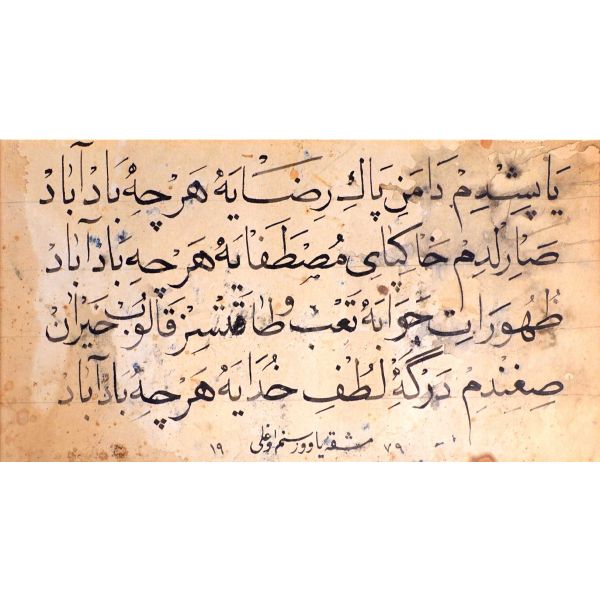 یاپشدم دامن پاك رضایه هرچه باد آباد
صارلدم خاكپای مصطفایه هرچه باد آباد
ظهورات جوابه تعب و طاقتسز قالوب حیران
صغندم درگه لطف خدایه هرچه باد آباد
١٩ مشقه یاووز سنم اوغلی ٧٩